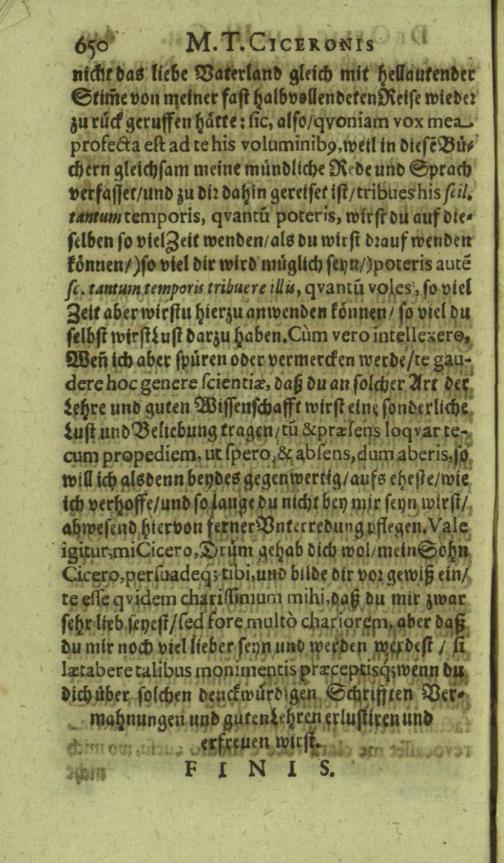 650 M.T. CICERONIS
nicht das liebe Vaterland gleich mit hellautender
Stim̃e von meiner fast halbvollendeten Reise wieder
zu rück geruffen hätte: sic, also/qvoniam vox mea
profecta est ad te his voluminib9, weil in diesẽ Bü-
chern gleichsam meine mündliche Rede und Sprach
verfasset/und zu dir dahin gereiset ist/tribues his scil.
tantum temporis, qvantũ poteris, wirst du auf die-
selben so viel Zeit wenden/als du wirst drauf wenden
können/)so viel dir wird müglich seyn/)poteris autẽ
sc. tantum temporis tribuere illis, qvantũ voles, so viel
Zeit aber wirstu hierzu anwenden können/ so viel du
selbst wirst Lust darzu haben. Cùm vero intellexero,
Weñ ich aber spüren oder vermercken werde/te gau-
dere hoc genere scientiæ, daß du an solcher Art der
Lehre und guten Wissenschafft wirst eine sonderliche
Lust und Beliebung tragen/tũ & præsens loqvar te-
cum propediem, ut spero, & absens, dum aberis, so
will ich alsdenn beydes gegenwertig/aufs eheste/wie
ich verhoffe/und so lange du nicht bey mir seyn wirst/
abwesend hiervon ferner Unterredung pflegen. Vale
igitur, mi Cicero, Drüm gehab dich wol/mein Sohn
Cicero, persuadeq; tibi, und bilde dir vor gewiß ein/
te esse qvidem charissimum mihi, daß du mir zwar
sehr lieb seyest/sed fore multò chariorem, aber daß
du mir noch viel lieber seyn und werden werdest/ si
lætabere talibus monimentis præceptisq; wenn du
dich über solchen denckwürdigen Schrifften Ver-
mahnungen und guten Lehren erlustiren und
erfreuen wirst.
F I N I S.